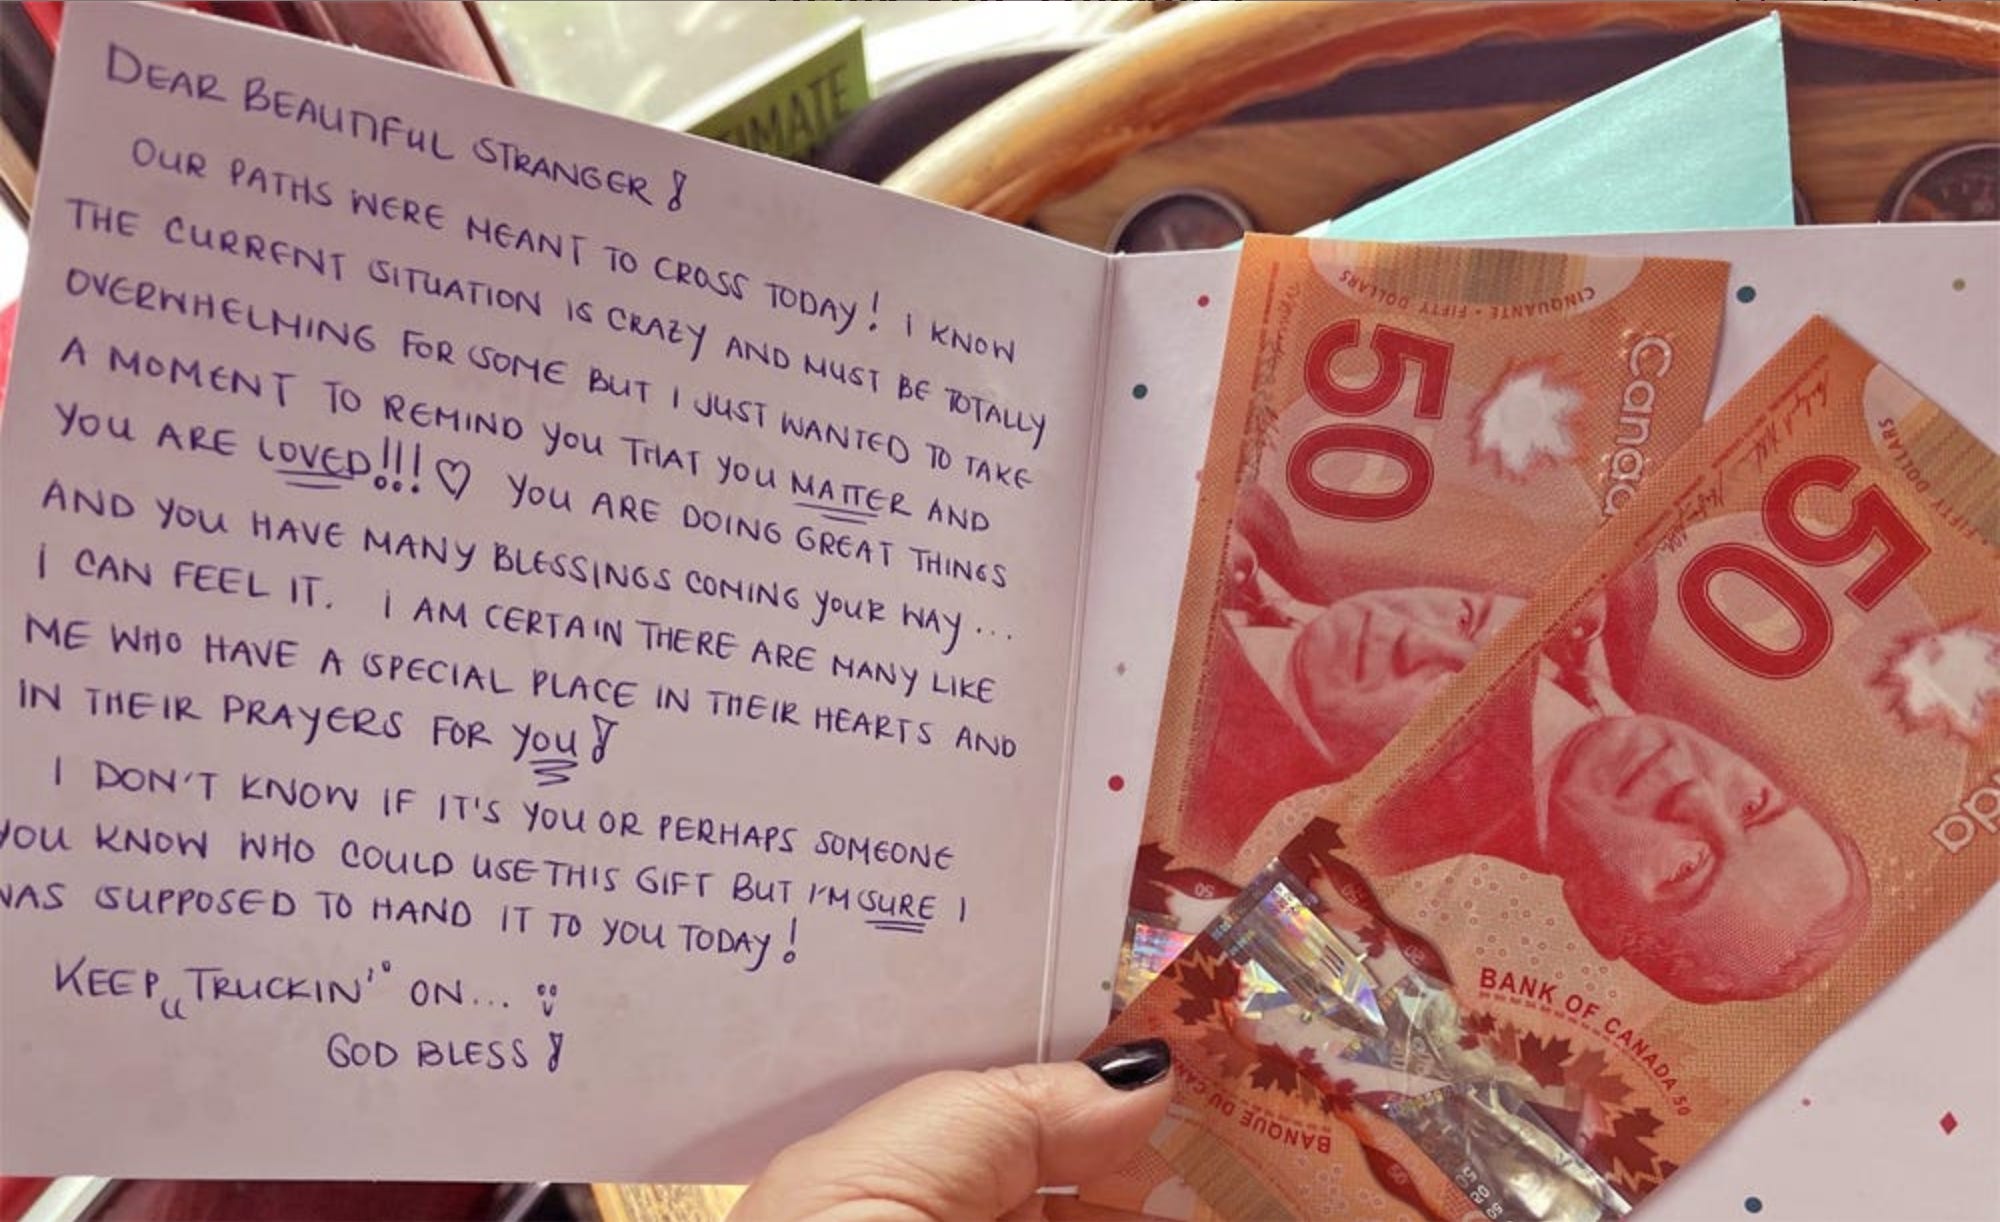 DEAR BEAUTIFUL STRANGER!
OUR PATHS WERE MEANT TO CROSS TODAY! I KNOW
THE CURRENT SITUATION IS CRAZY AND MUST BE TOTALLY
OVERWHELMING FOR SOME BUT I JUST WANTED TO TAKE
A MOMENT TO REMIND YOU THAT YOU MATTER AND
YOU ARE LOVED!!! ♡ YOU ARE DOING GREAT THINGS
AND YOU HAVE MANY BLESSINGS COMING YOUR WAY...
I CAN FEEL IT. I AM CERTAIN THERE ARE MANY LIKE
ME WHO HAVE A SPECIAL PLACE IN THEIR HEARTS AND
IN THEIR PRAYERS FOR YOU!
I DON'T KNOW IF IT'S YOU OR PERHAPS SOMEONE
YOU KNOW WHO COULD USE THIS GIFT BUT I'M SURE I
WAS SUPPOSED TO HAND IT TO YOU TODAY!
KEEP "TRUCKIN'" ON...
GOD BLESS!
TIMATE
CINQUANTE • FIFTY DOLLARS
50
Canada
FIFTY DOLLARS
50
BANK OF CANADA
BANQUE DU CAN